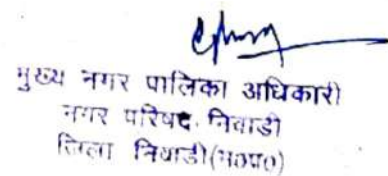 मुख्य नगर पालिका अधिकारी
नगर परिषद निवाडी
जिला निवाडी(म०प्र०)